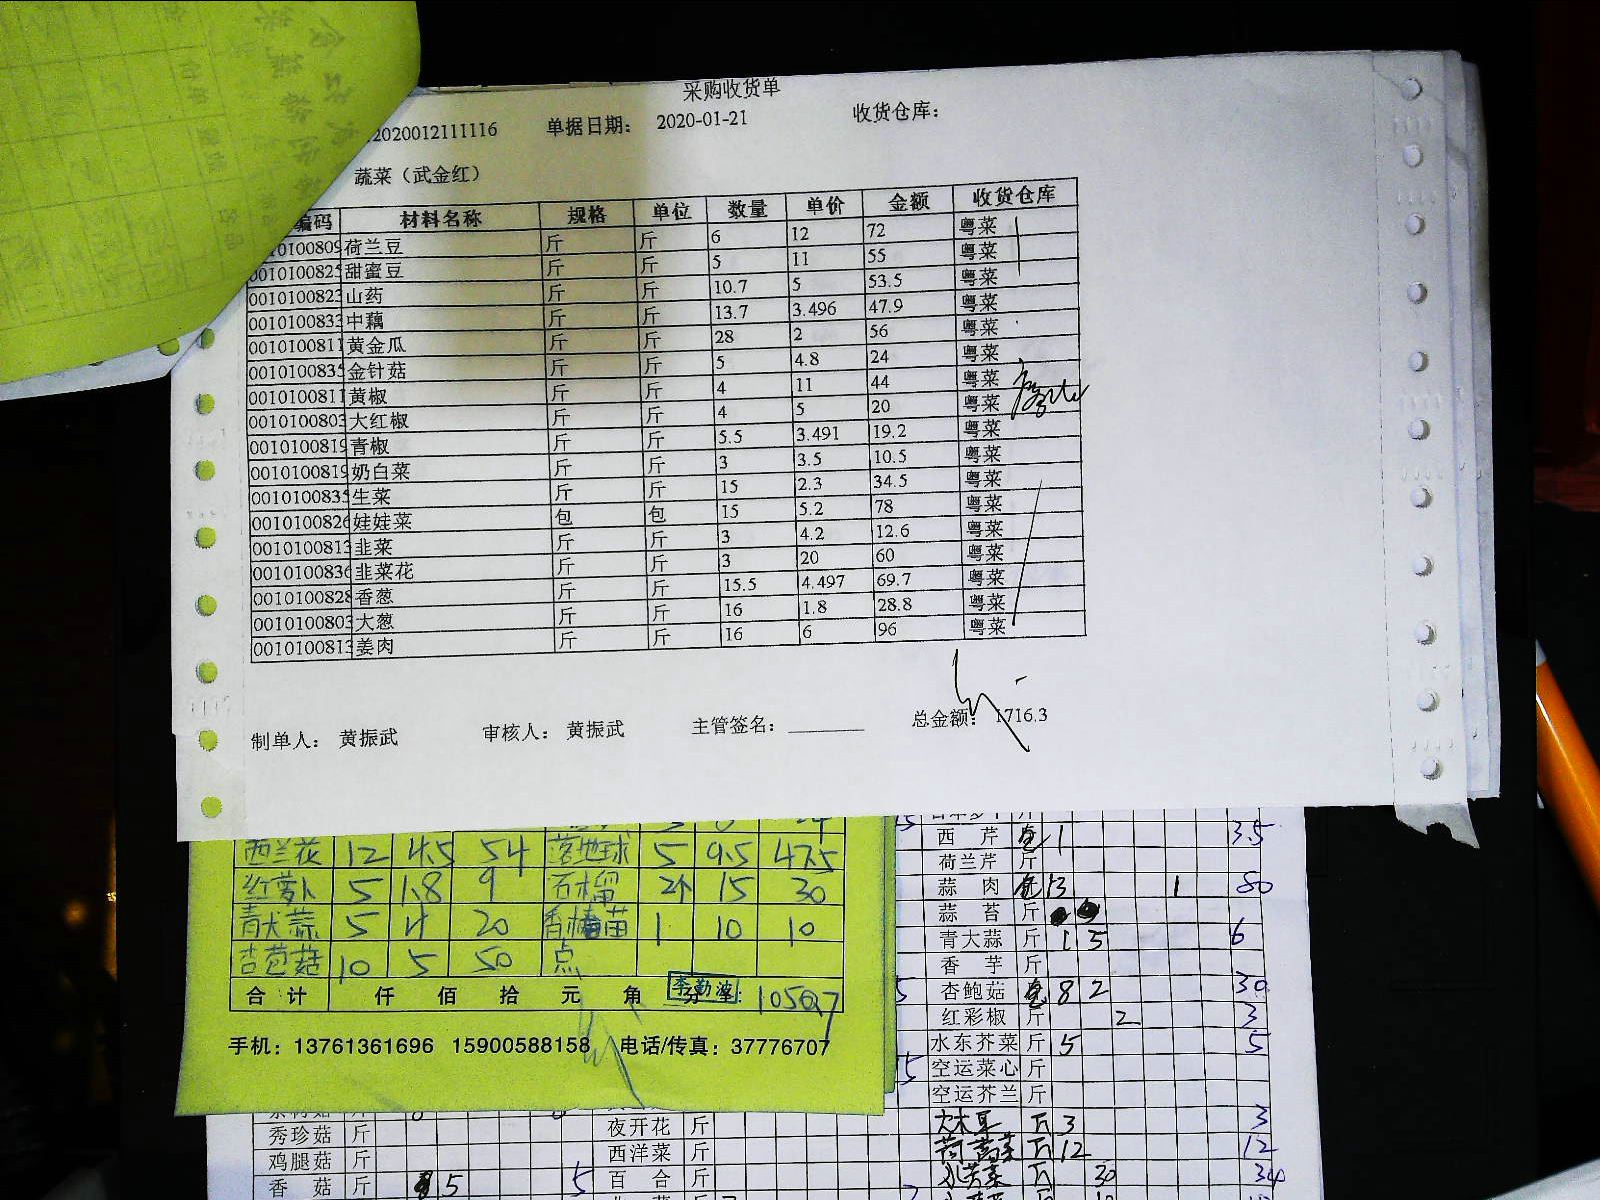 采购收货单
2020012111116 单据日期： 2020-01-21 收货仓库：
蔬菜（武金红）
编码 材料名称 规格 单位 数量 单价 金额 收货仓库
0010100809 荷兰豆 斤 斤 6 12 72 粤菜
0010100825 甜蜜豆 斤 斤 5 11 55 粤菜
0010100823 山药 斤 斤 10.7 5 53.5 粤菜
0010100833 中藕 斤 斤 13.7 3.496 47.9 粤菜
0010100811 黄金瓜 斤 斤 28 2 56 粤菜
0010100835 金针菇 斤 斤 5 4.8 24 粤菜
0010100811 黄椒 斤 斤 4 11 44 粤菜
0010100803 大红椒 斤 斤 4 5 20 粤菜
0010100819 青椒 斤 斤 5.5 3.491 19.2 粤菜
0010100819 奶白菜 斤 斤 3 3.5 10.5 粤菜
0010100835 生菜 斤 斤 15 2.3 34.5 粤菜
0010100826 娃娃菜 包 包 15 5.2 78 粤菜
0010100813 韭菜 斤 斤 3 4.2 12.6 粤菜
0010100836 韭菜花 斤 斤 3 20 60 粤菜
0010100828 香葱 斤 斤 15.5 4.497 69.7 粤菜
0010100803 大葱 斤 斤 16 1.8 28.8 粤菜
0010100813 姜肉 斤 斤 16 6 96 粤菜
制单人： 黄振武 审核人： 黄振武 主管签名： 总金额： 1716.3
西兰花 12 4.5 54 落地球 5 9.5 47.5
红萝卜 5 1.8 9 石榴 2个 15 30
青大蒜 5 4 20 香椿苗 1 10 10
杏苞菇 10 5 50 点
合计 仟 佰 拾 元 角 李勤波 1050.7
手机：13761361696 15900588158 电话/传真：37776707
西芹 1 3.5
荷兰芹 斤
蒜肉 包 13 1 80
蒜苔 斤
青大蒜 斤 1 5 6
香芋 斤
杏鲍菇 8 2 30
红彩椒 斤 2 3
水东芥菜 斤 5 5
空运菜心 斤
空运芥兰 斤
大木耳 斤 3 3
荷蒿菜 斤 12 12
斤 30 30
秀珍菇 斤 夜开花 斤
鸡腿菇 斤 西洋菜 斤
香菇 斤 5 5 百合 斤